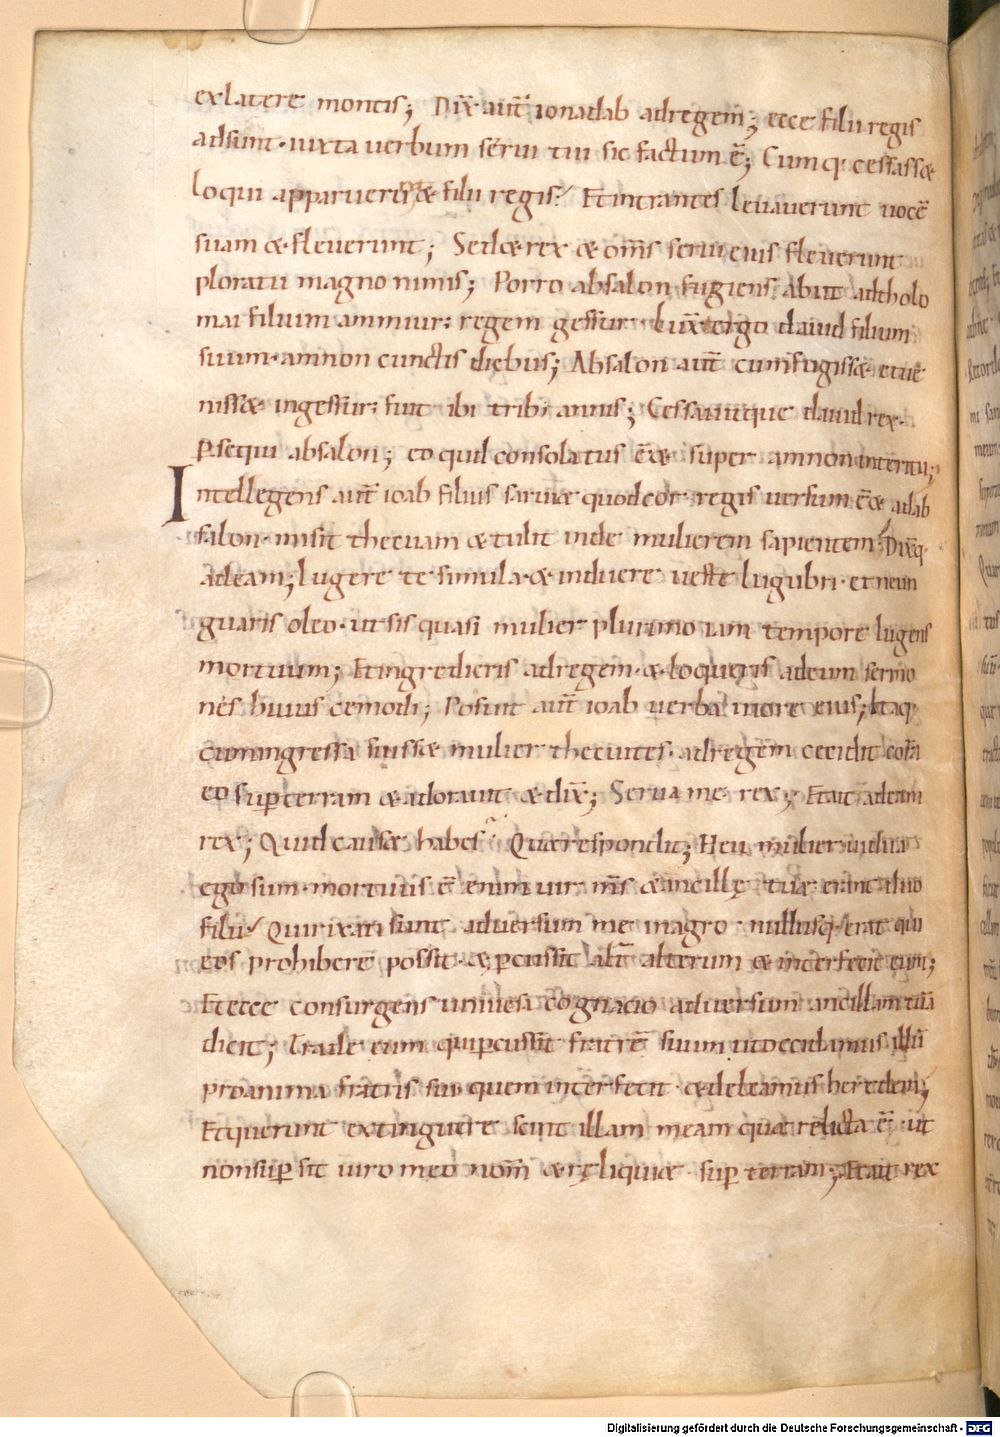 ex latere montis; Dix̄ aut̄ ionadab adregem; ecce filii regis
adsunt· iuxta uerbum serui tui sic factum ē; Cumq· cessassæ
loqui apparuer̄ & filii regis; Et intrantes leuauerunt uocē
suam & fleuerunt; Sed & rex & oms̄ serui eius fleuerunt
ploratu magno nimis; Porro absalon fugiens· abiit adtholo
mai filium ammiur· regem gessur· Lux̄ ergo dauid filium
suum· amnon cunctis diebus; Absalon aut̄ cum fugissæ· et ue
nissæ· in gessur· fuit ibi trib; annis; Cessauitque dauid rex·
ꝑsequi absalon; eo quod consolatus eēæ super amnon interitu;
Intellegens aut̄ ioab filius saruiæ quod cor· regis uersum eēæ adab
salon· misit thecuam & tulit inde mulierem sapientem; Dixq·
adeam; Lugere te simula· & induere ueste lugubri· et ne un
guaris oleo· ut sis quasi mulier plurimo iam tempore lugens
mortuum; Et ingredieris adregem· & loqueris adeum sermo
nes huius cemodi; Posuit aut̄ ioab uerba in ore eius; Itaq·
cum ingressa fuissæ mulier thecuites· adregem cecidit corā
eo suꝑ terram & adorauit & dix̄; Serua me rex; Et ait adeam
rex; Quid causæ habes; Quæ respondit; Heu mulier uidua
ego sum· mortuus ē enim uir ms̄ & ancillę tuæ erant duo
filii; Qui rixati sunt aduersum me in agro· nullusq· erat qui
eos prohibere possit· & ꝑcussit alt̄ alterum & interfecit eum;
Et ecce consurgens uniuersa cognacio aduersum ancillam tuā
dicit; Trade eum qui ꝑcussit fratrē suum ut occidamus illū
pro anima fratris sui quem interfecit· & deleamus heredem;
Et querunt extinguere scint illam meam quæ relicta ē· ut
non suꝑ sit uiro meo nom̄ & reliquiæ· suꝑ terram; Et ait rex
Digitalisierung gefördert durch die Deutsche Forschungsgemeinschaft - DFG